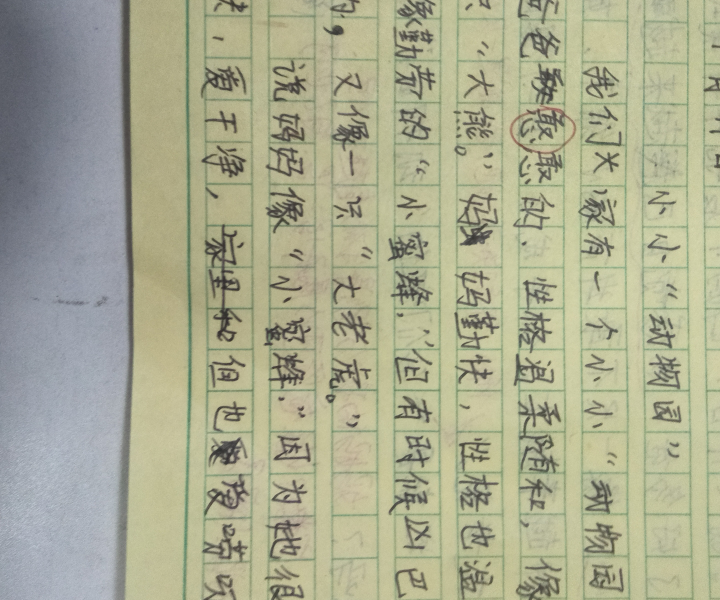 小小“动物园”
我们大家有一个小小“动物园
爸爸憨憨的、性格温柔随和，像
只“大熊。”妈妈勤快，性格也温
像勤劳的“小蜜蜂，”但有时候凶巴
的，又像一只“大老虎。”
说妈妈像“小蜜蜂，”因为她很
快，爱干净，但也爱唠叨